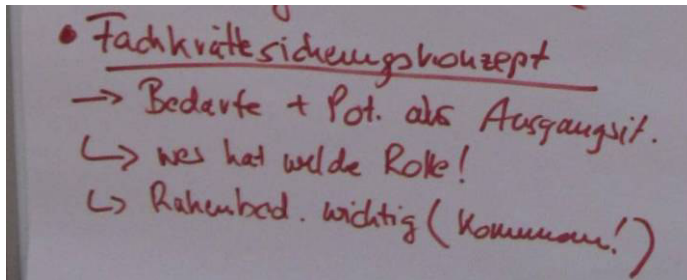 • Fachkräftesicherungskonzept
→ Bedarfe + Pot. als Ausgangsit.
↳ wer hat welche Rolle!
↳ Rahenbed. wichtig (Kommunen!)